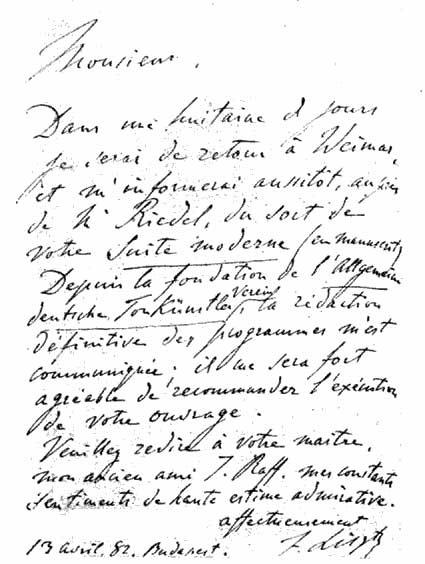 Monsieur,
Dans une huitaine de jours
je serai de retour à Weimar,
et m'informerai aussitôt, auprès
de Mr Riedel, du sort de
votre Suite moderne (en manuscrit)
Depuis la fondation de l'Allgemeine
deutsche Tonkünstler Verein, la rédaction
définitive des programmes m'est
communiquée. il me sera fort
agréable de recommander l'exécution
de votre ouvrage.
Veuillez redire à votre maître,
mon ancien ami J. Raff. mes constants
sentiments de haute estime admirative.
affectueusement
F. Liszt
13 avril. 82. Budapest.